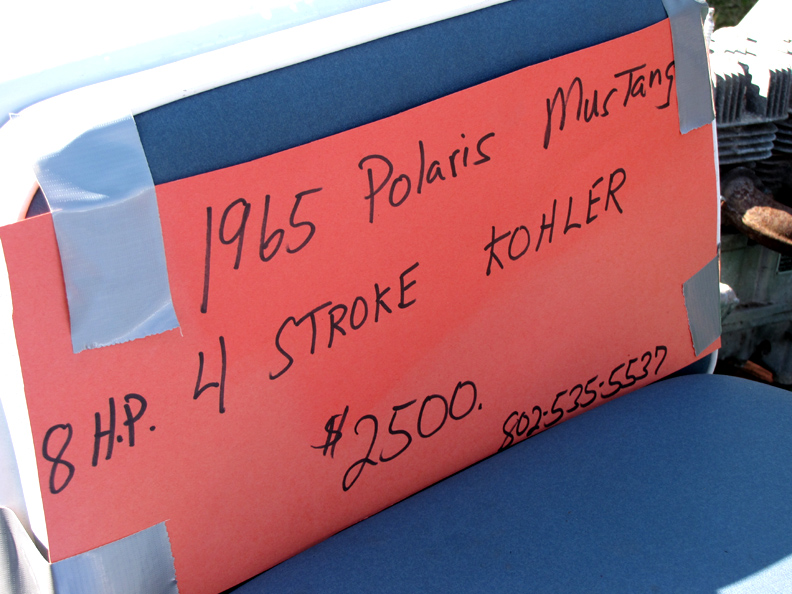 1965 Polaris Mustang
8 H.P. 4 STROKE KOHLER
$2500. 802·535·5537